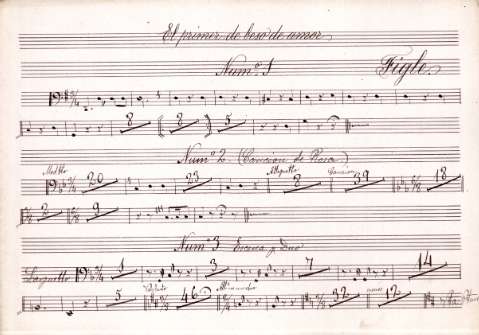 El primer de beso de amor
Num.º 1 Figle
8 8 5
Num.º 2 (Cancion de Rosa)
Modtto 20 23 Allegretto 8 Cancion 39 18
2 9
Num.º 3 Escena y Duo
Larguetto 1 3 7 14
5 46 32 12